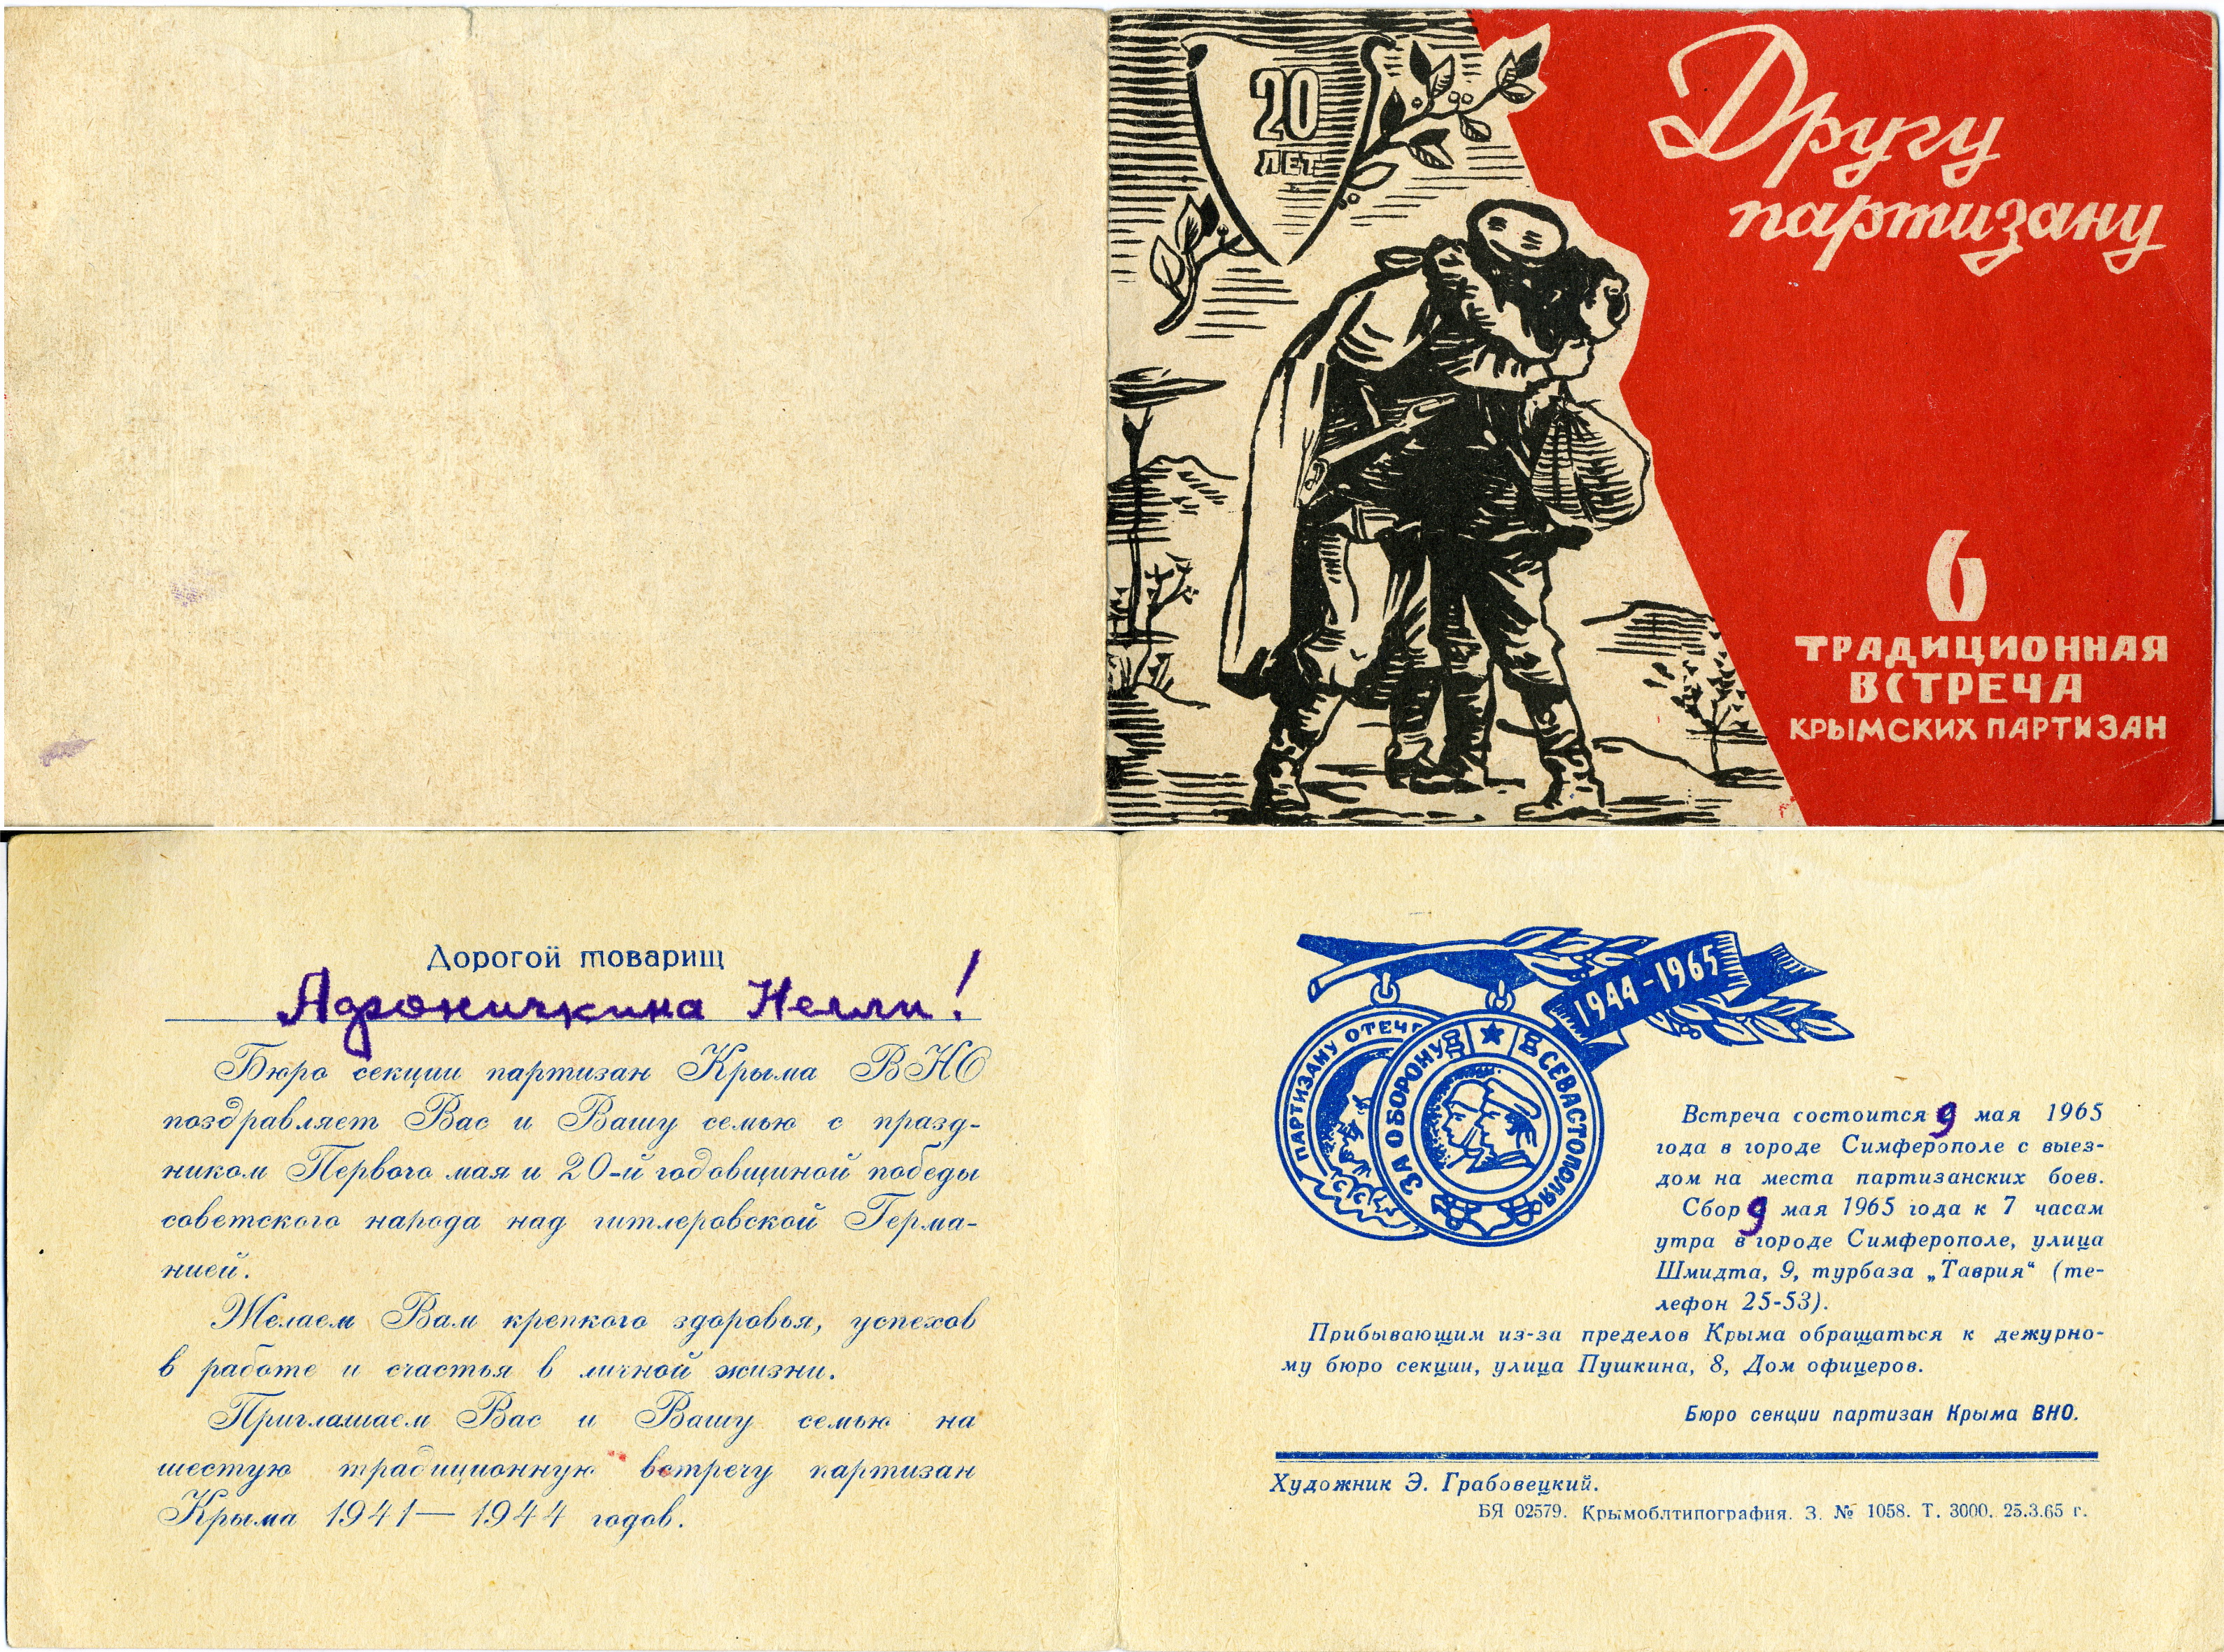 20
ЛЕТ
Другу
партизану
6
ТРАДИЦИОННАЯ
ВСТРЕЧА
КРЫМСКИХ ПАРТИЗАН
Дорогой товарищ
Адроничкина Нелли!
Бюро секции партизан Крыма ВНО
поздравляет Вас и Вашу семью с празд-
ником Первого мая и 20-й годовщиной победы
советского народа над гитлеровской Герма-
нией.
Желаем Вам крепкого здоровья, успехов
в работе и счастья в личной жизни.
Приглашаем Вас и Вашу семью на
шестую традиционную встречу партизан
Крыма 1941—1944 годов.
1944-1965
ПАРТИЗАНУ ОТЕЧ
ЗА ОБОРОНУ СЕВАСТОПОЛЯ
Встреча состоится 9 мая 1965
года в городе Симферополе с выез-
дом на места партизанских боев.
Сбор 9 мая 1965 года к 7 часам
утра в городе Симферополе, улица
Шмидта, 9, турбаза „Таврия“ (те-
лефон 25-53).
Прибывающим из-за пределов Крыма обращаться к дежурно-
му бюро секции, улица Пушкина, 8, Дом офицеров.
Бюро секции партизан Крыма ВНО.
Художник Э. Грабовецкий.
БЯ 02579. Крымоблтипография. З. № 1058. Т. 3000. 25.3.65 г.